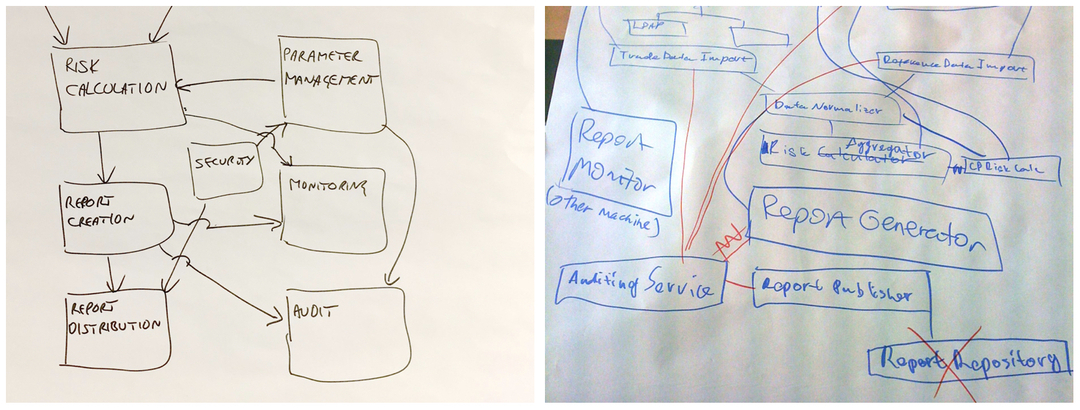 RISK
CALCULATION
PARAMETER
MANAGEMENT
SECURITY
MONITORING
REPORT
CREATION
REPORT
DISTRIBUTION
AUDIT
LDAP
Trade Data Import
Reference Data Import
Data Normalizer
Report
Monitor
(other machine)
Aggregator
Risk Calculator
CP Risk Calc
Report Generator
Auditing Service
Report Publisher
Report Repository